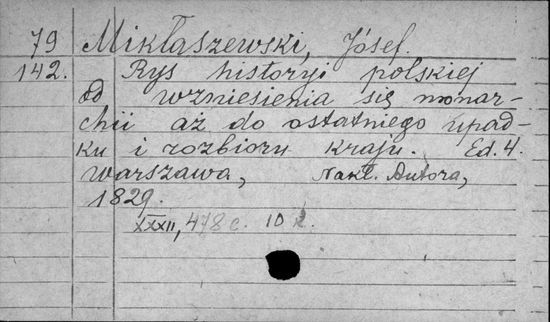 79 Mikłaszewski, Józef.
142. Rys historyi polskiej
od wzniesienia się monar-
chii aż do ostatniego upad-
ku i rozbioru kraju. Ed. 4.
Warszawa, Nakł. Autora,
1829.
XXXII, 478 c. 10 k.